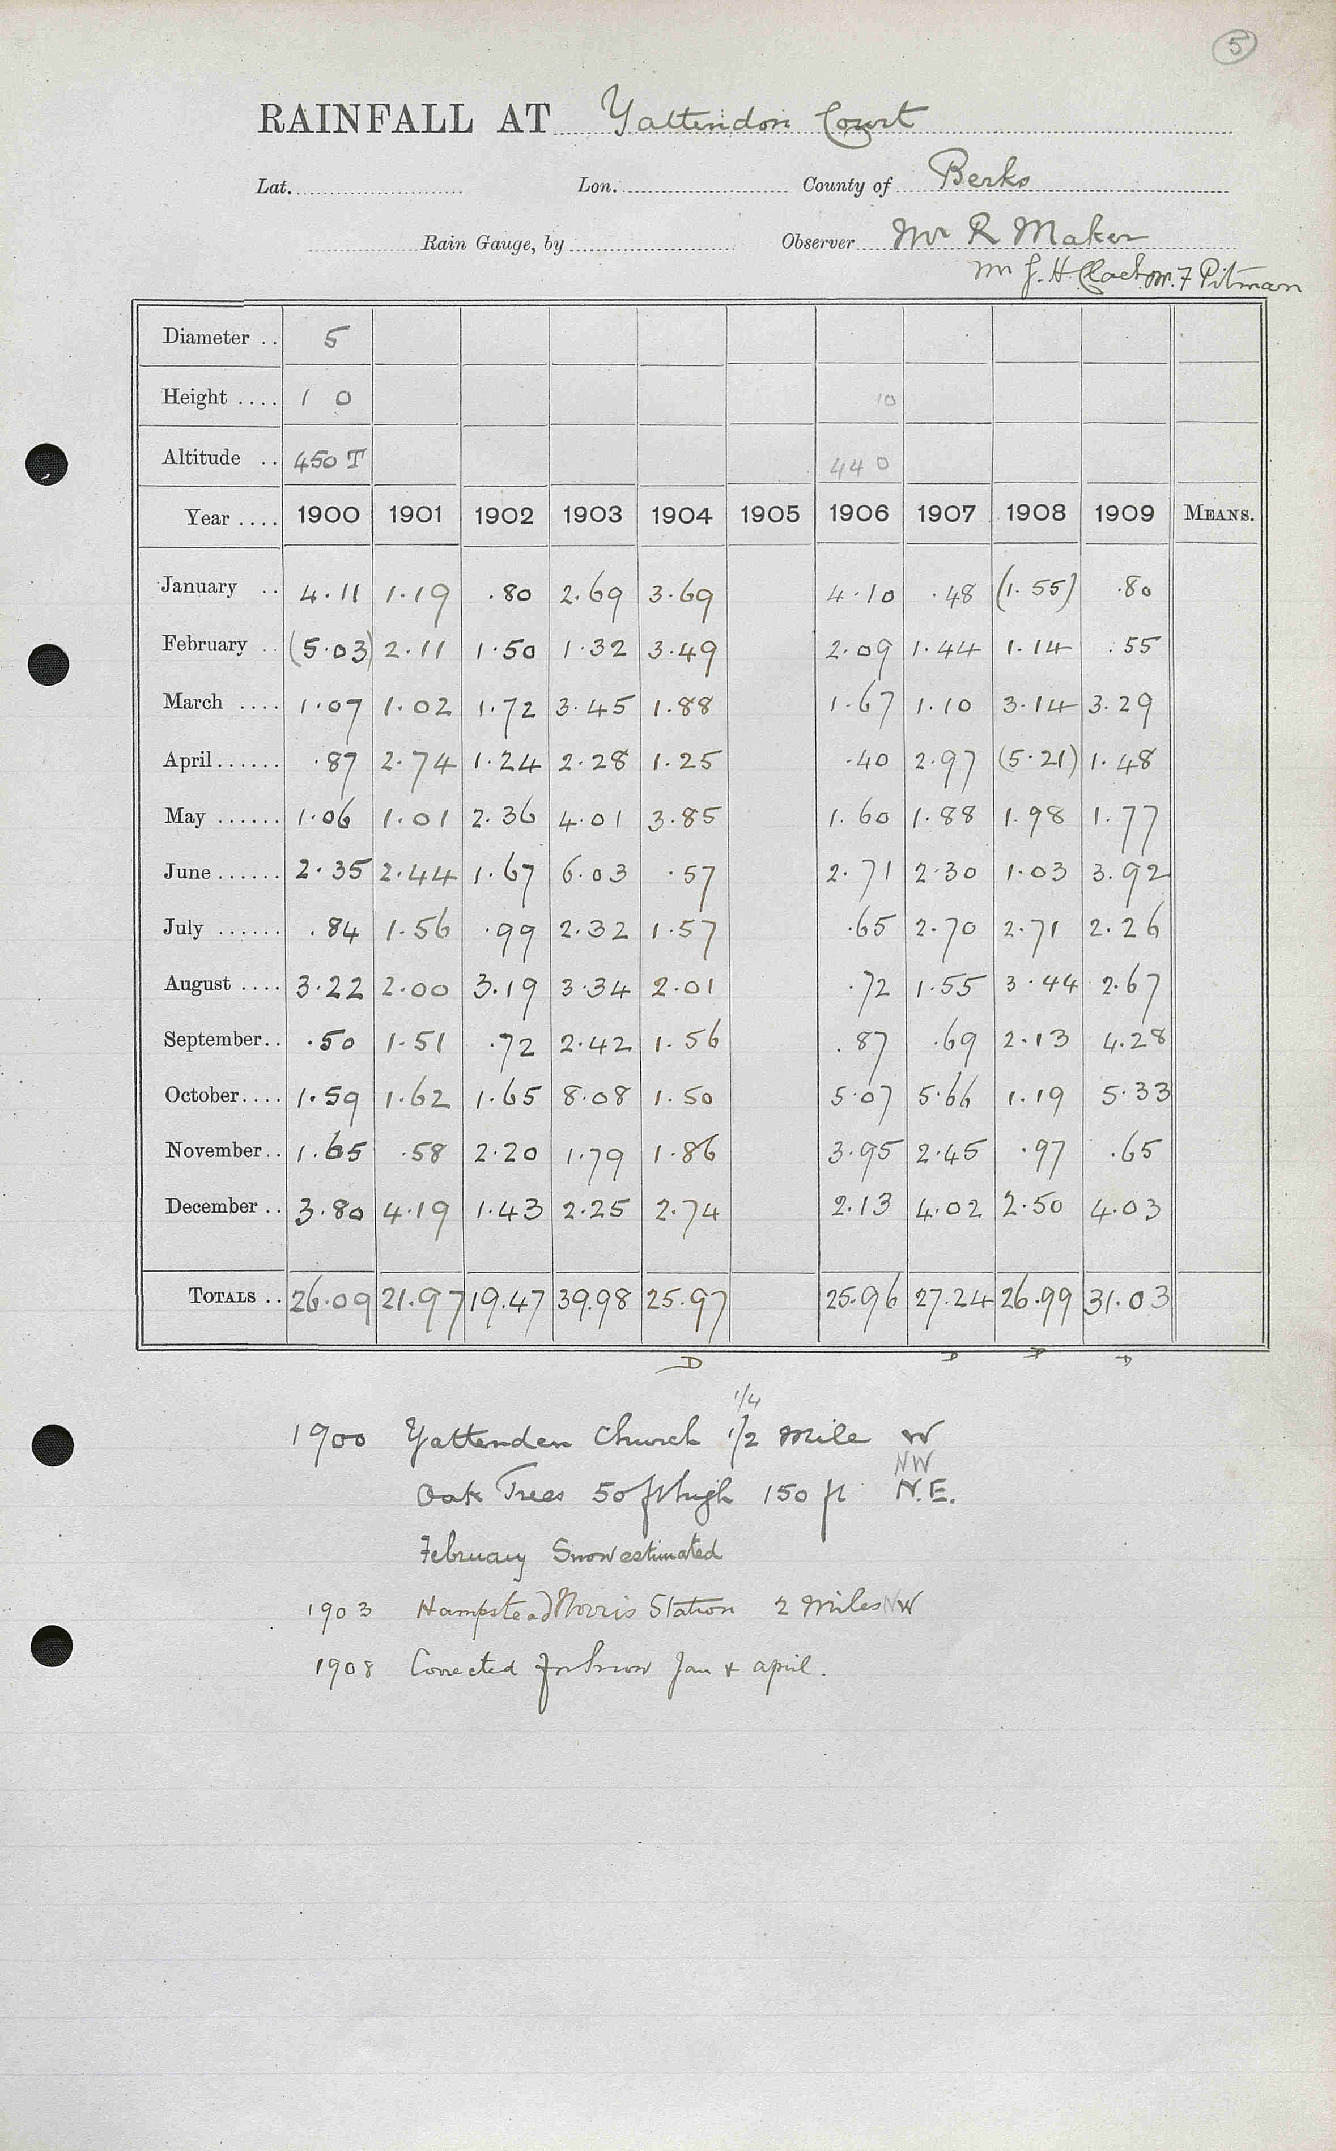 5
RAINFALL AT Yattendon Court
Lat. Lon. County of Berks
Rain Gauge, by Observer Mr R Maker
Mr J. H. M. F Pitman
Diameter .. 5
Height .... 1 0 10
Altitude .. 450 T 440
Year .... 1900 1901 1902 1903 1904 1905 1906 1907 1908 1909 MEANS.
January .. 4.11 1.19 .80 2.69 3.69 4.10 .48 (1.55) .80
February .. (5.03) 2.11 1.50 1.32 3.49 2.09 1.44 1.14 .55
March .... 1.07 1.02 1.72 3.45 1.88 1.67 1.10 3.14 3.29
April...... .87 2.74 1.24 2.28 1.25 .40 2.97 (5.21) 1.48
May ...... 1.06 1.01 2.36 4.01 3.85 1.60 1.88 1.98 1.77
June...... 2.35 2.44 1.67 6.03 .57 2.71 2.30 1.03 3.92
July ...... .84 1.56 .99 2.32 1.57 .65 2.70 2.71 2.26
August .... 3.22 2.00 3.19 3.34 2.01 .72 1.55 3.44 2.67
September.. .50 1.51 .72 2.42 1.56 .87 .69 2.13 4.28
October.... 1.59 1.62 1.65 8.08 1.50 5.07 5.66 1.19 5.33
November.. 1.65 .58 2.20 1.79 1.86 3.95 2.45 .97 .65
December .. 3.80 4.19 1.43 2.25 2.74 2.13 4.02 2.50 4.03
TOTALS .. 26.09 21.97 19.47 39.98 25.97 25.96 27.24 26.99 31.03
D D D D
1/4
1900 Yattenden Church 1/2 Mile W
NW
Oak Trees 50 ft high 150 ft N.E.
February Snow estimated
1903 Hampstead Norris Station 2 Miles NW
1908 Corrected for Snow Jan & April.